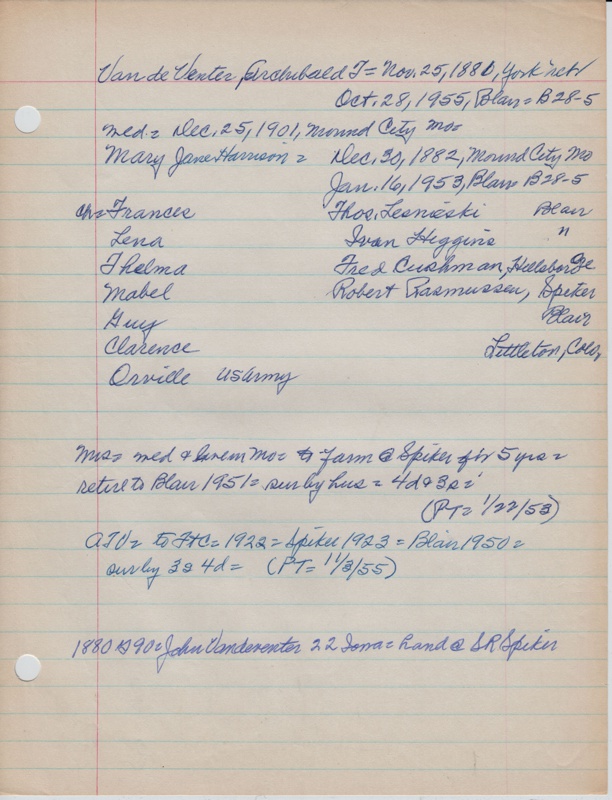 Van de Venter, Archibald T = Nov. 25, 1880, York Nebr
Oct. 28, 1955, Blair = B28-5
med. = Dec. 25, 1901, Mound City Mo =
Mary Jane Harrison = Dec. 30, 1882, Mound City Mo
Jan. 16, 1953, Blair B28-5
ch = Frances Thos. Lesnieski Blair
Lena Ivan Higgins "
Thelma Fred Cushman, Hillsboro
Mabel Robert Rasmussen, Spiker
Guy Blair
Clarence Littleton, Colo,
Orville US Army
Mrs = med & liv in Mo = to farm @ Spiker for 5 yrs =
retire to Blair 1951 = sur by hus = 4d & 3s =
(PT = 1/22/53)
ATV = to Ft C = 1922 = Spiker 1923 = Blair 1950 =
sur by 3s 4d = (PT = 11/3/55)
1880 = John Vandeventer 22 Iowa = hand @ SR Spiker